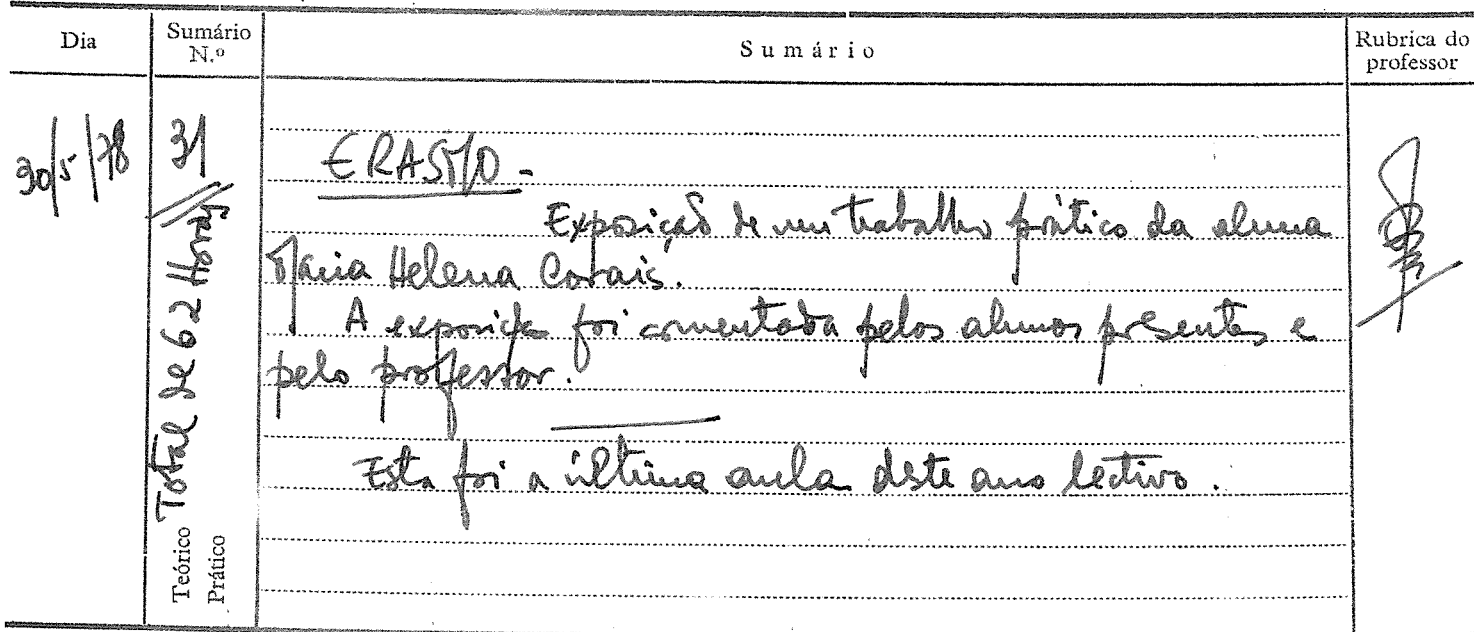 Dia
Sumário
N.º
Sumário
Rubrica do
professor
30/5/78
31
Total de 62 Horas
Teórico
Prático
ERASMO -
Exposição de um trabalho prático da aluna
Maria Helena Corais.
A exposição foi comentada pelos alunos presentes e
pelo professor.
Esta foi a última aula deste ano lectivo.